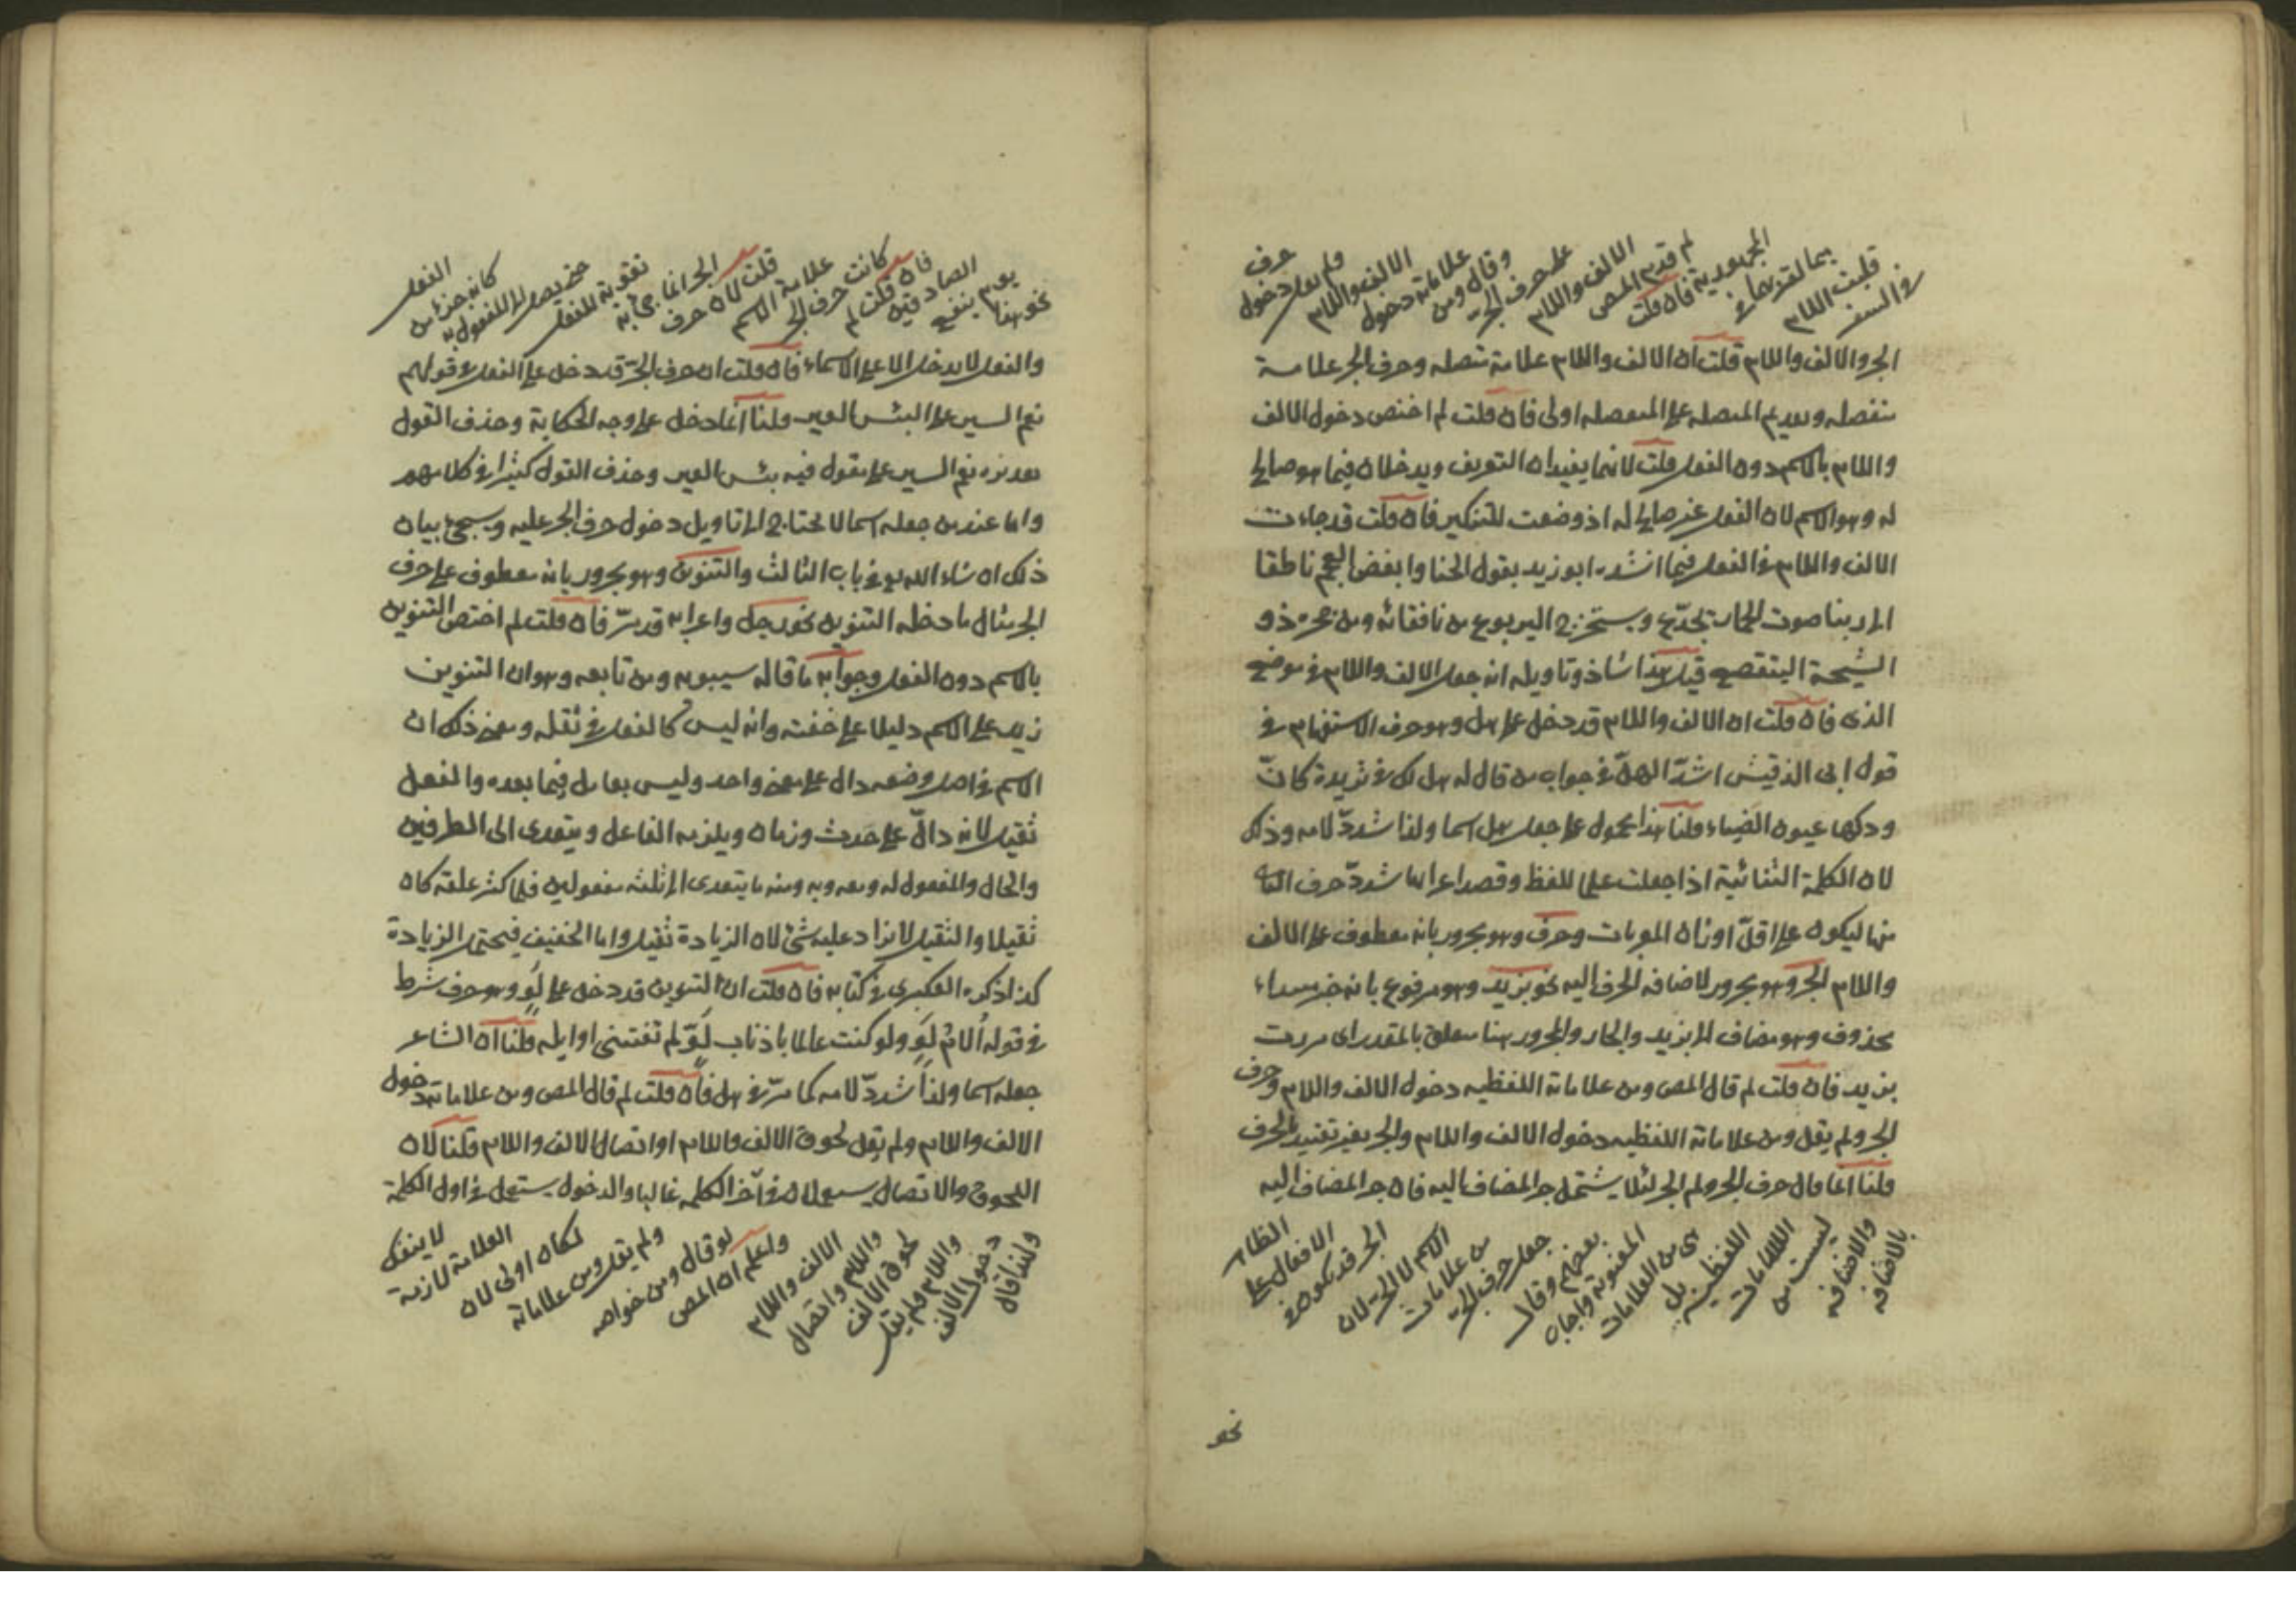 في السفـ
قلبت اللام
بيما لقربها في
الجر بعدية فان قلت
لم قدم المص
الالف واللام
على حرف الجر
وقال ومن
علاماته دخول
الالف واللام
ولم يقل دخول
حرف
الجر والالف واللام قلت ان الالف واللام علامة متصله وحرف الجر علامة
منفصله وتقديم المتصله على المنفصله اولى فان قلت لم اختص دخول الالف
واللام بالاسم دون الفعل قلت لانهما يفيدان التعريف ويدخلان فيما هو صالح
له وهو الاسم لان الفعل غير صالح له اذ وضعت للتنكير فان قلت قد جاءت
الالف واللام في الفعل فيما انشده ابو زيد يقول الخنا وابغض العجم ناطقا
الى ربنا صوت الحمار يجدّع ويستخرج اليربوع من نافقائه ومن جحره ذو
الشيحة اليتقصع قيل هذا شاذ وتاويله انه جعل الالف واللام في موضع
الذى فان قلت ان الالف واللام قد دخل على هل وهو حرف الاستفهام في
قول ابى الدقيش اشدّ الهلّ في جواب من قال له هل لك في ثريدة كانّ
ودكها عيون الضياء قلنا هذا محمول على جعل هل اسما ولذا شددّ لامه وذلك
لان الكلمة الثنائية اذا جعلت علما للفظ وقصد اعرابها شددّ حرف الثانى
منها ليكون على اقلّ اوزان المعربات وحرف وهو مجرور بانه معطوف على الالف
واللام الجر وهو مجرور لاضافه الحرف اليه نحو بزيد وهو مرفوع بانه خبر مبتداء
محذوف وهو مضاف الى بزيد والجار والمجرور هنا متعلق بالمقدر اى مررت
بزيد فان قلت لم قال المص ومن علاماته اللفظيه دخول الالف واللام وحرف
الجر ولم يقل ومن علاماته اللفظيه دخول الالف واللام والجر بغير تقييد بالحرف
قلنا انما قال حرف الجر ولم الجر لئلا يشتمل جر المضاف اليه فان جر المضاف اليه
بالاضافه
والاضافه
ليست من
العلامات
اللفظيه بل
هى من العلامات
المعنويه واجاب
بعضهم وقال
جعل حرف الجر
من علامات
الاسم لا الجر لان
الجر قد يكون في
الافعال على
الظاهر
نحو
نحو هذا
يوم ينفع
الصادقين
فان قلت لم
كانت حرف الجر
علامة الاسم
قلت لان حرف
الجر انما جئ به
تقوية للفعل
حتى يصل الى المفعول به
كانه جزء من
الفعل
والفعل لا يدخل الا على الاسماء فان قلت ان حرف الجر قد دخل على الفعل في قولهم
نعم السير على البئس العير قلنا انما دخل على وجه الحكاية وحذف القول
تقديره نعم السير على مقول فيه بئس العير وحذف القول كثيرا في كلامهم
واما عند من جعله اسما لا تحتاج الى تاويل دخول حرف الجر عليه وسيجئ بيان
ذلك ان شاء الله تع في باب الثالث والتنوين وهو مجرور بانه معطوف على حرف
الجر مثال ما دخله التنوين نحو رجل واعرابه قد مرّ فان قلت لم اختص التنوين
بالاسم دون الفعل وجوابه ما قاله سيبويه ومن تابعه وهو ان التنوين
زيد على الاسم دليلا على خفته وانه ليس كالفعل في ثقله ومعنى ذلك ان
الاسم في اصل وضعه دال على معنى واحد وليس بعامل فيما بعده والفعل
ثقيل لانه دالّ على حدث وزمان ويلزمه الفاعل ويتعدى الى الظرفين
والحال والمفعول له ومعه وبه ومنه ما يتعدى الى ثلثه مفعولين فلما كثر علقه كان
ثقيلا والثقيل لا يزاد عليه شئ لان الزيادة ثقيل واما الخفيف فيحتمل الزيادة
كذا ذكره العكبرى في كتابه فان قلت ان التنوين قد دخل على لو وهو حرف شرط
في قوله الام على لوّ ولو كنت عالما باذناب لوّ لم تفتنى اوايله قلنا ان الشاعر
جعله اسما ولذا شددّ لامه كما مرّ في هل فان قلت لم قال المص ومن علاماته دخول
الالف واللام ولم يقل لحوق الالف واللام او اتصال الالف واللام قلنا لان
اللحوق والاتصال يستعملان في آخر الكلمه غالبا والدخول يستعمل في اول الكلمة
ولهذا قال
دخول الالف
واللام ولم يقل
لحوق الالف
واللام واتصال
الالف واللام
واعلم ان المص
لو قال ومن خواصه
ولم يقل ومن علاماته
لكان اولى لان
العلامة لازمة
لا ينفك